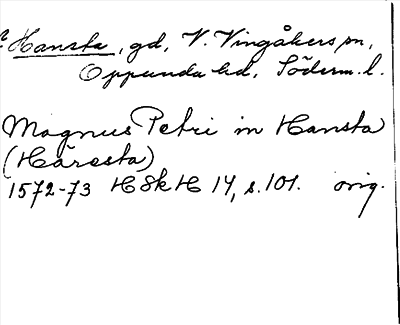 ? Hansta, gd, V. Vingåkers sn,
Oppunda hd, Söderm. l.
Magnus Petri in Hansta
(Háresta)
1572-73 HSkH 14, s. 101. orig.